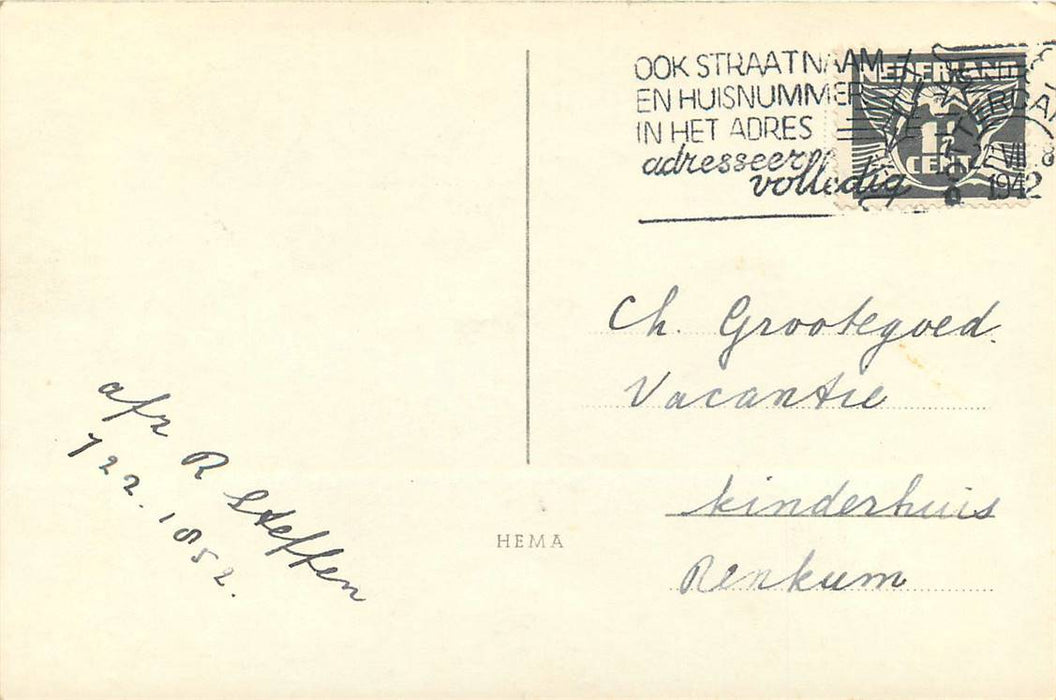 OOK STRAATNAAM
EN HUISNUMMER
IN HET ADRES
adresseer
volledig
NEDERLAND
CENT
22 VII 8
1942
Ch. Grootegoed.
Vacantie
kinderhuis
Renkum
HEMA
afz R Steffen